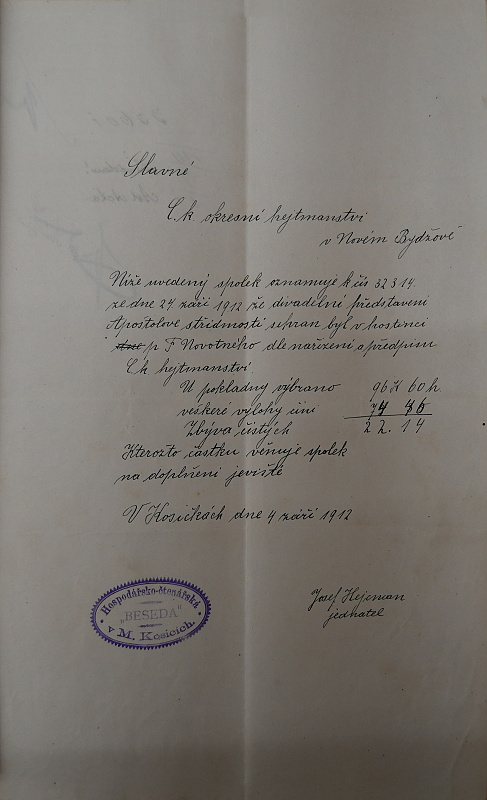 Slavné
C.k. okresní hejtmanství
v Novém Bydžově
Níže uvedený spolek oznamuje k čís 32314.
ze dne 24 září 1912 že divadelní představení
Apoštolové střídmosti sehrán byl v hostinci
p F. Novotného dle nařízení a předpisů
C.k hejtmanství.
U pokladny vybráno 96 K 60 h
veškeré výlohy činí 74 46
Zbývá čistých 22. 14
Kterožto částku věnuje spolek
na doplnění jeviště
V Kosičkách dne 4 září 1912
Josef Hejcman
jednatel
Hospodářsko-čtenářská
"BESEDA"
v M. Kosicích.